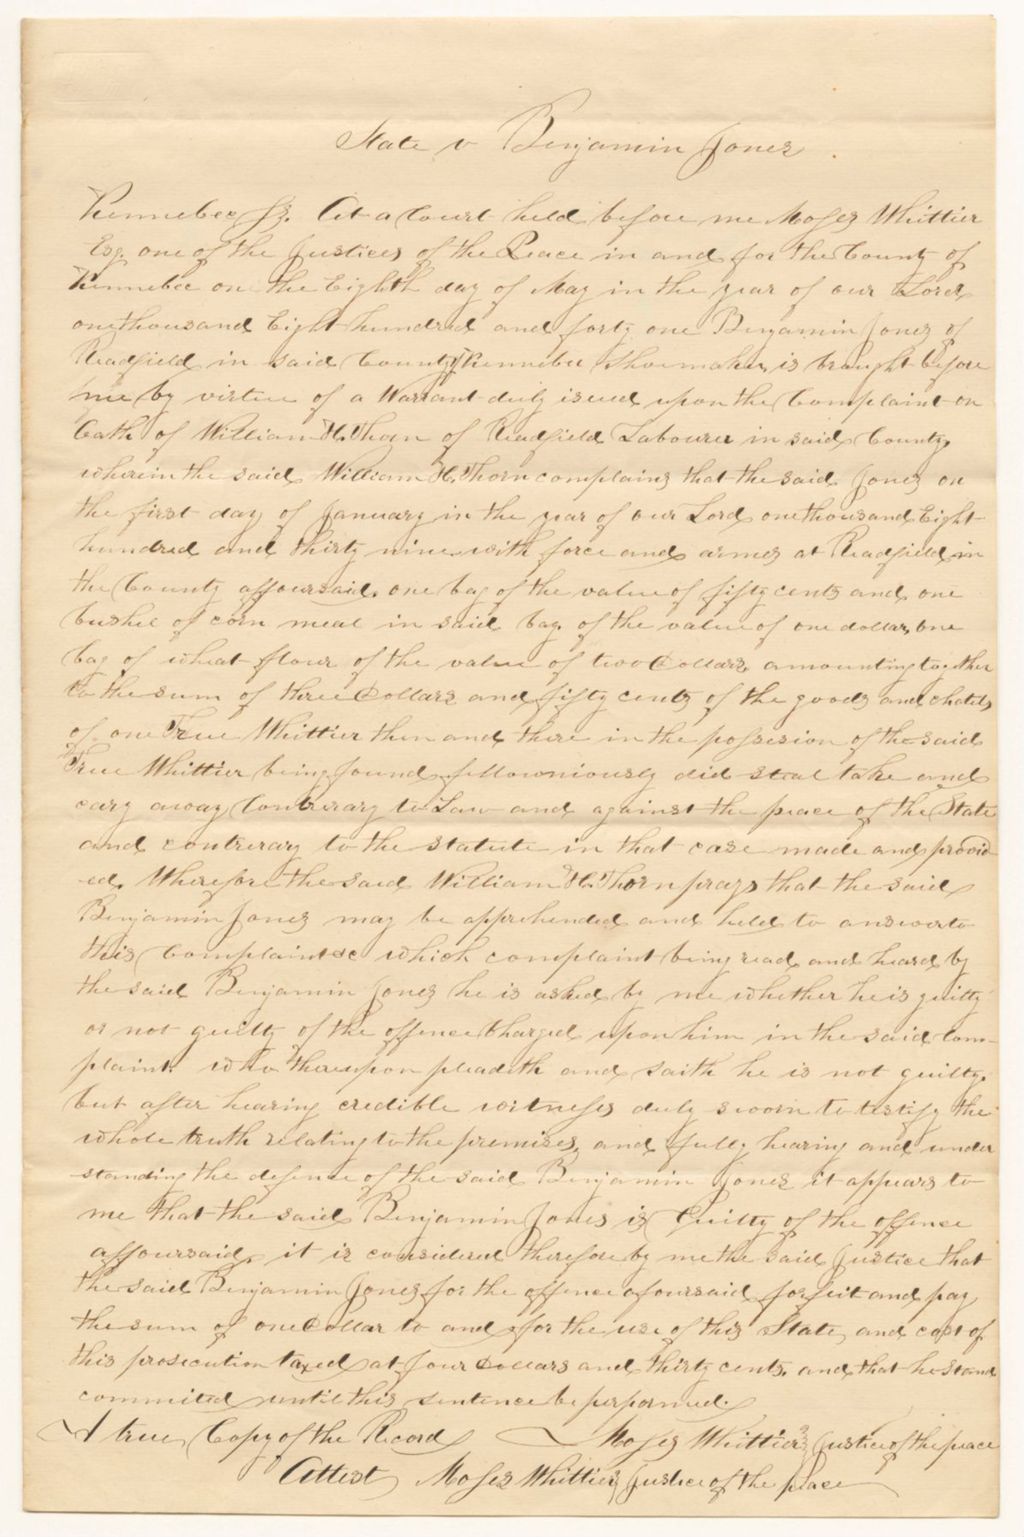 State v Benjamin Jones
Kennebec Ss. At a Court held before me Moses Whittier
Esq. one of the Justices of the Peace in and for the County of
Kennebec on the Eighth day of May in the year of our Lord
one thousand Eight hundred and forty one Benjamin Jones of
Readfield in said County of Kennebec Shoemaker is braught before
me by virtue of a Warrant duly isued upon the Complaint on
Oath of William H. Thorn of Readfield Labourer in said County
wherein the said William H. Thorn complains that the said Jones on
the first day of January in the year of our Lord one thousand Eight
hundred and thirty nine with force and armes at Readfield in
the County affoursaid. one bag of the value of fifty cents and one
bushel of corn meal in said bag of the value of one dollar, one
bag of wheat flour of the value of two Dollars amounting together
to the sum of three Dollars and fifty cents of the goods and chatels
of one True Whittier then and there in the possesion of the said
True Whittier being found fellowniously did steal take and
cary away Contrerary to Law and against the peace of the State
and contrerary to the statute in that case made and provid
ed. Wherefore the said William H. Thorn prays that the said
Benjamin Jones may be apprehended and held to answer to
this Complaint &c which complaint being read and heard by
the said Benjamin Jones he is asked by me whether he is guilty
or not guilty of the offence Charged upon him in the said Com-
plaint who thereupon pleadeth and saith he is not guilty.
but after hearing credible witneses duly sworn to testify the
whole truth relating to the premises, and fully hearing and under
standing the defence of the said Benjamin Jones it appears to
me that the said Benjamin Jones is Guilty of the offence
affoursaid, it is considered therefore by me the said Justice that
the said Benjamin Jones for the offence afoursaid forfeit and pay
the sum of one Dollar to and for the use of this State, and cost of
this prosecution taxed at four Dollars and thirty cents. and that he stand
commited until this sentence be performed.
A true Copy of the Record Moses Whittier Justice of the peace
Attest Moses Whittier Justice of the place